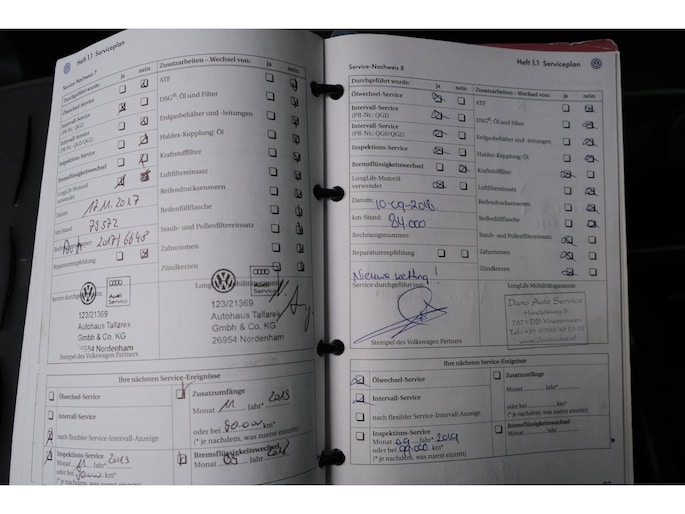 Heft 1.1 Serviceplan
Service-Nachweis 7
Durchgeführt wurde:
Ja
nein
Zusatzarbeiten – Wechsel von:
Ja
nein
Ölwechsel-Service
ATF
Intervall-Service
(PR-Nr.: QG1)
DSG®: Öl und Filter
Intervall-Service
(PR-Nr.: QG0/QG2)
Erdgasbehälter und -leitungen
Haldex-Kupplung: Öl
Inspektions-Service
Kraftstofffilter
Bremsflüssigkeitswechsel
Luftfiltereinsatz
LongLife Motoröl
verwendet
Reifendrucksensoren
Datum:
Reifenfüllflasche
km-Stand: 78572
Staub- und Pollenfiltereinsatz
2017/6648
Zahnriemen
Reparaturempfehlung
Zündkerzen
Service durchgeführt von:
Audi
Service
123/21369
Autohaus Tallarek
Gmbh & Co. KG
26954 Nordenham
123/21369
Autohaus Tallarek
Gmbh & Co. KG
26954 Nordenham
Stempel des Volkswagen Partners
Ihre nächsten Service-Ereignisse
Ölwechsel-Service
Zusatzumfänge
Monat 11 Jahr*
Intervall-Service
oder bei 90.000 km*
nach flexibler Service-Intervall-Anzeige
(* je nachdem, was zuerst eintritt)
Inspektions-Service
Monat 11 Jahr*
oder bei km*
(* je nachdem, was zuerst eintritt)
Bremsflüssigkeitswechsel
Monat Jahr
Heft 1.1 Serviceplan
Service-Nachweis 8
Durchgeführt wurde:
ja
nein
Zusatzarbeiten – Wechsel von:
ja
nein
Ölwechsel-Service
ATF
Intervall-Service
(PR-Nr.: QG1)
DSG®: Öl und Filter
Intervall-Service
(PR-Nr.: QG0/QG2)
Erdgasbehälter und -leitungen
Inspektions-Service
Haldex-Kupplung: Öl
Bremsflüssigkeitswechsel
Kraftstofffilter
LongLife Motoröl
verwendet
Luftfiltereinsatz
Datum: 10-09-2018
Reifendrucksensoren
km-Stand: 84.000
Reifenfüllflasche
Rechnungsnummer:
Staub- und Pollenfiltereinsatz
Reparaturempfehlung
Zahnriemen
Zündkerzen
Nieuwe ketting!
Service durchgeführt von:
LongLife Mobilitätsgarantie:
Dano Auto Service
Stempel des Volkswagen Partners
Ihre nächsten Service-Ereignisse
Ölwechsel-Service
Zusatzumfänge
Monat Jahr*
Intervall-Service
oder bei km*
nach flexibler Service-Intervall-Anzeige
(* je nachdem, was zuerst eintritt)
Inspektions-Service
Monat 09 Jahr* 2019
oder bei km*
(* je nachdem, was zuerst eintritt)
Bremsflüssigkeitswechsel
Monat Jahr